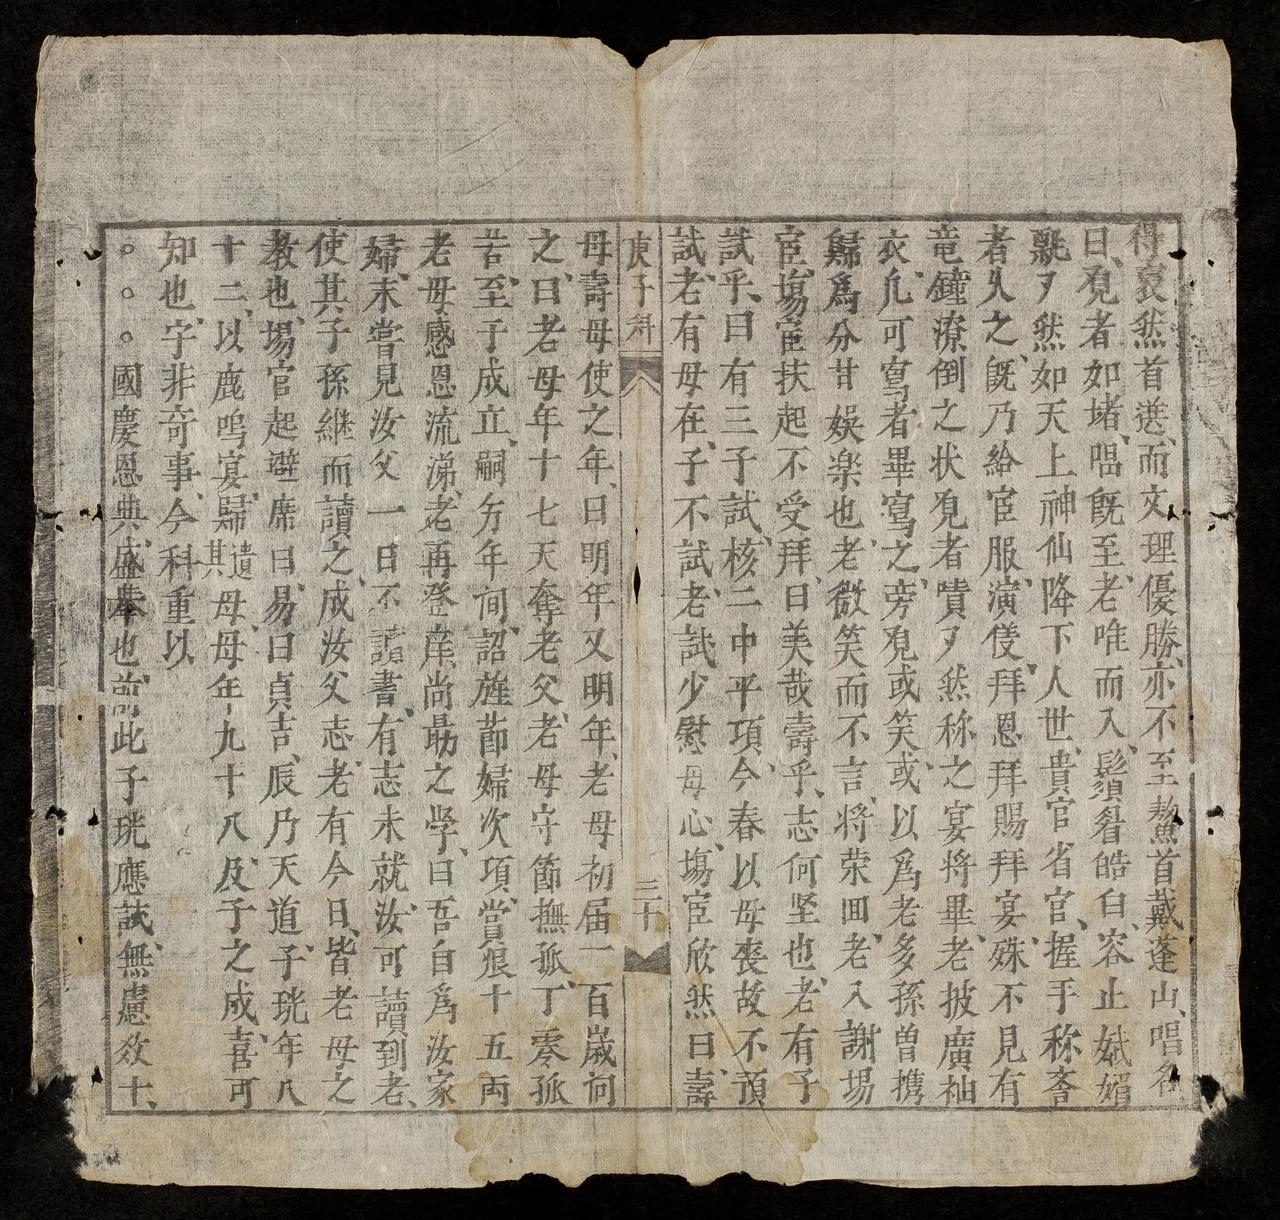 得裒然首選、而文理優勝、亦不至鰲首戴蓬山、唱名
日、覔者如堵、唱旣至、老唯而入、鬚眷皓白、容止娬媚
翫〻然如天上神仙降下人世、貴官省官、握手称耆
者乆之、旣乃給宦服、演伎、拜恩拜賜拜宴、殊不見有
竜鐘潦倒之状、覔者嘖〻然称之、宴將畢、老披廣袖
衣、凢可寫者畢寫之、旁覔或笑、或以爲老多孫曾携
歸爲分甘娯楽也、老微笑而不言、將荣囬、老入謝場
宦、塲宦扶起不受拜、曰美哉壽乎、志何坚也、老有子
試乎、曰有三子試、核二中平項、今春以母丧故不預
試、老有母在、子不試、老試少慰母心、塲宦欣然曰、壽
庚子科
三十
母壽母使之年、曰明年又明年、老母初届一百歲、问
之、曰老母年十七天奪老父、老母守節撫孤、丁零孤
苦、至于成立、嗣方年间、詔旌莭婦次項、賞痕十五両
老母感恩流涕、老再登庠、尚勗之学、曰吾自爲汝家
婦、未嘗見汝父一日不讀書、有志未就、汝可讀到老、
使其子孫継而讀之、成汝父志、老有今日、皆老母之
教也、場官起避席曰、易曰貞吉、辰乃天道、子珖年八
十二、以鹿鳴宴、歸遺其母、母年九十八、及子之成、喜可
知也、字非竒事、今科重以
。。。國慶恩典、盛举也、前此子珖應試、無慮效十、